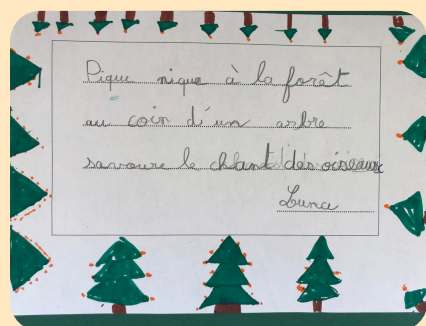 Pique nique à la forêt
au coin d'un arbre
savoure le chant des oiseaux
Luna